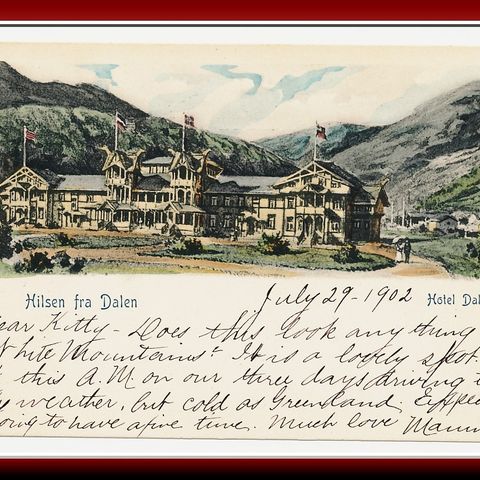 Hilsen fra Dalen
July 29-1902
Hotel Dal
ear Kitty - Does this look any thing
hite Mountains? It is a lovely spot.
this A.M on our three days driving
weather, but cold as Greenland.
oing to have a fine time. Much love